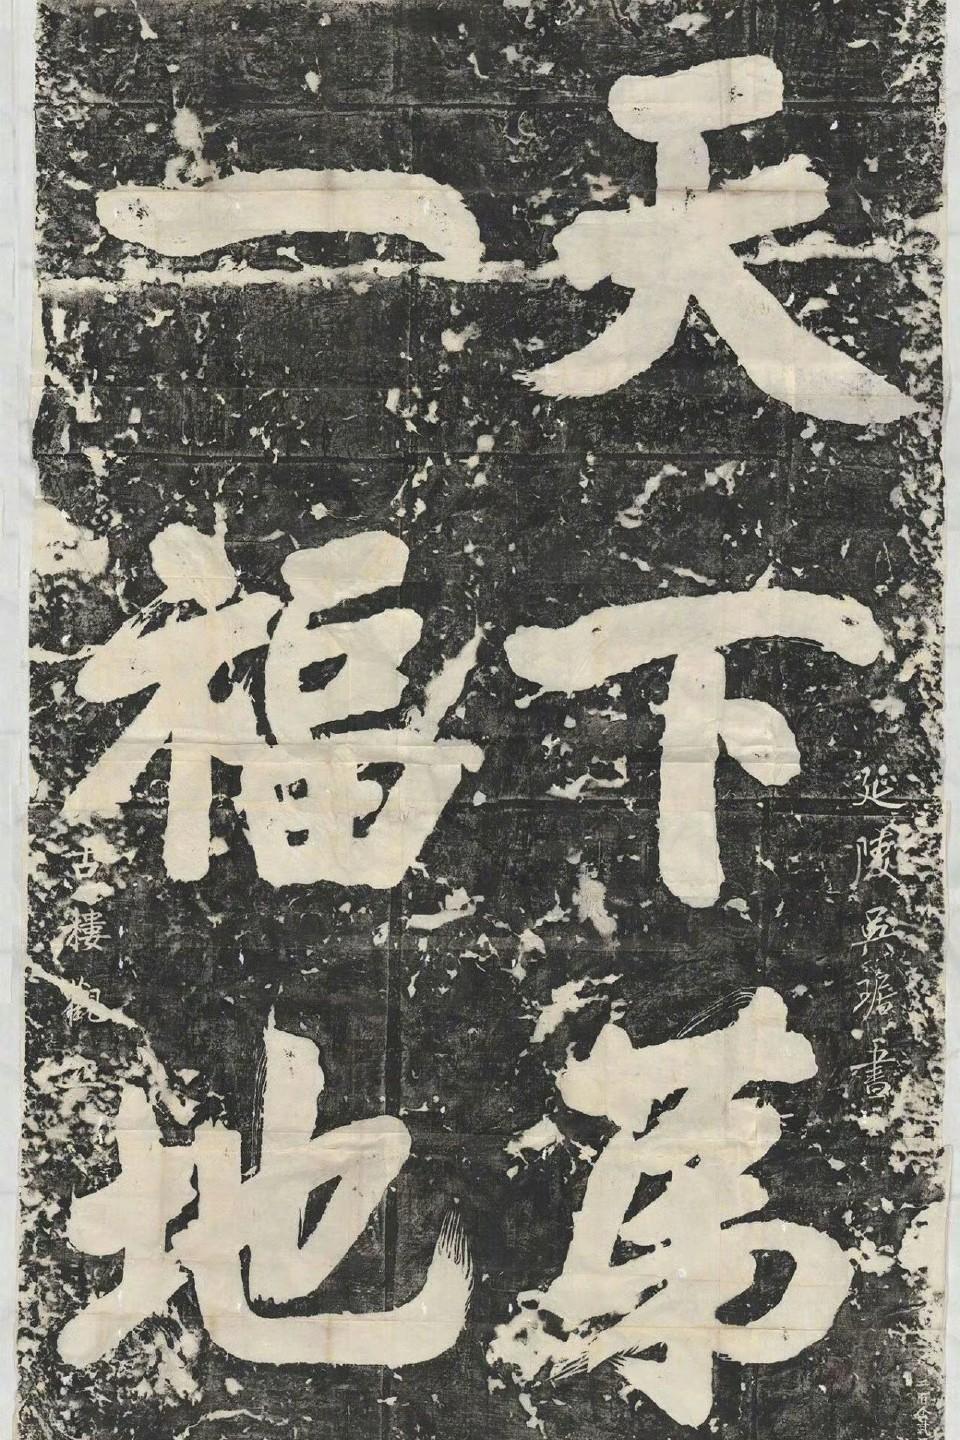 天下第
一福地
延陵吳琚書
古樓觀